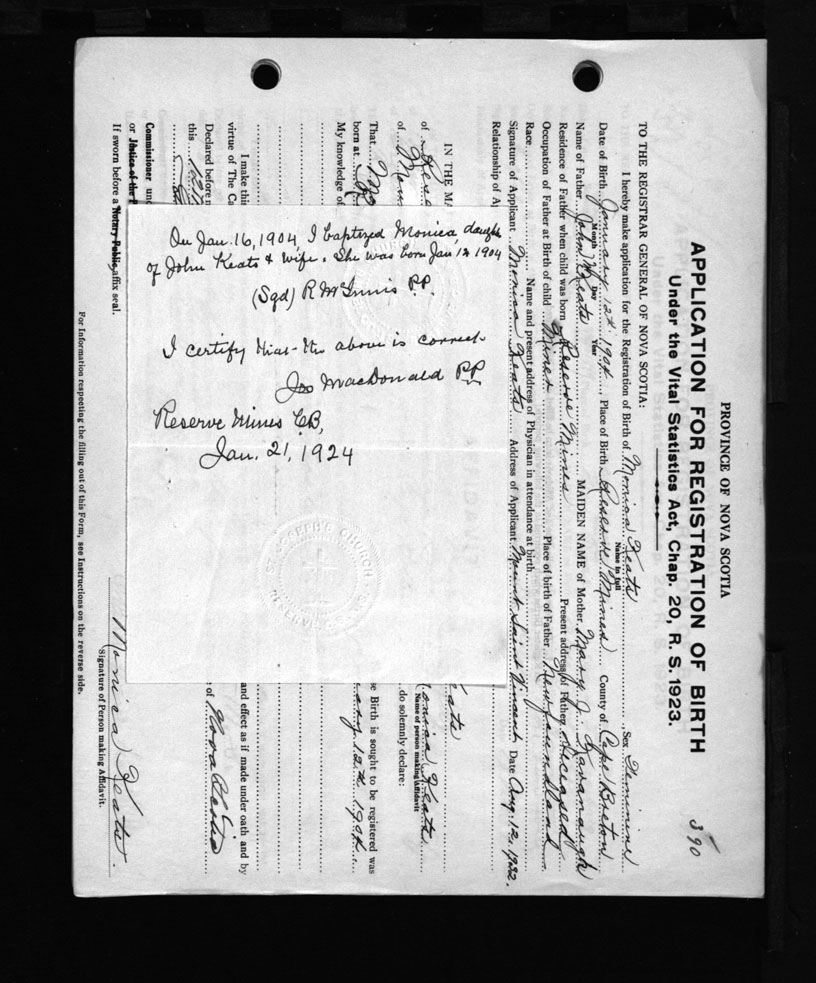 PROVINCE OF NOVA SCOTIA
390
APPLICATION FOR REGISTRATION OF BIRTH
Under the Vital Statistics Act, Chap. 20, R. S. 1923.
TO THE REGISTRAR GENERAL OF NOVA SCOTIA:
I hereby make application for the Registration of Birth of Monica Keats Sex Feminine
Name in full
Date of Birth January 12th 1904 Place of Birth Reserve Mines County of Cape Breton
Month Day Year
Name of Father John Keats MAIDEN NAME of Mother Mary J. Kavanaugh
Residence of Father when child was born Reserve Mines Present address of Father deceased
Occupation of Father at Birth of child Mines Place of birth of Father Newfoundland
Race Name and present address of Physician in attendance at birth
Signature of Applicant Monica Keats Address of Applicant Mount Saint Vincent Date Aug. 12, 1932.
Relationship of A
IN THE MA Keats
of Rese onica Keats
Name of person making Affidavit
of do solemnly declare:
That Mo se Birth is sought to be registered was
born at ary 12th 1904
My knowledge of
I make this and effect as if made under oath and by
virtue of The Ca
Declared before m
this of
Commissioner und
or Justice of the P
If sworn before a Notary Public, affix seal.
Monica Keats
Signature of Person making Affidavit.
For Information respecting the filling out of this Form, see Instructions on the reverse side.
On Jan. 16, 1904, I baptized Monica, daugh
of John Keats & wife. She was born Jan 12 1904
(Sgd) R McInnis P.P.
I certify that the above is correct
Jos MacDonald PP
Reserve Mines CB,
Jan. 21, 1924
CHURCH